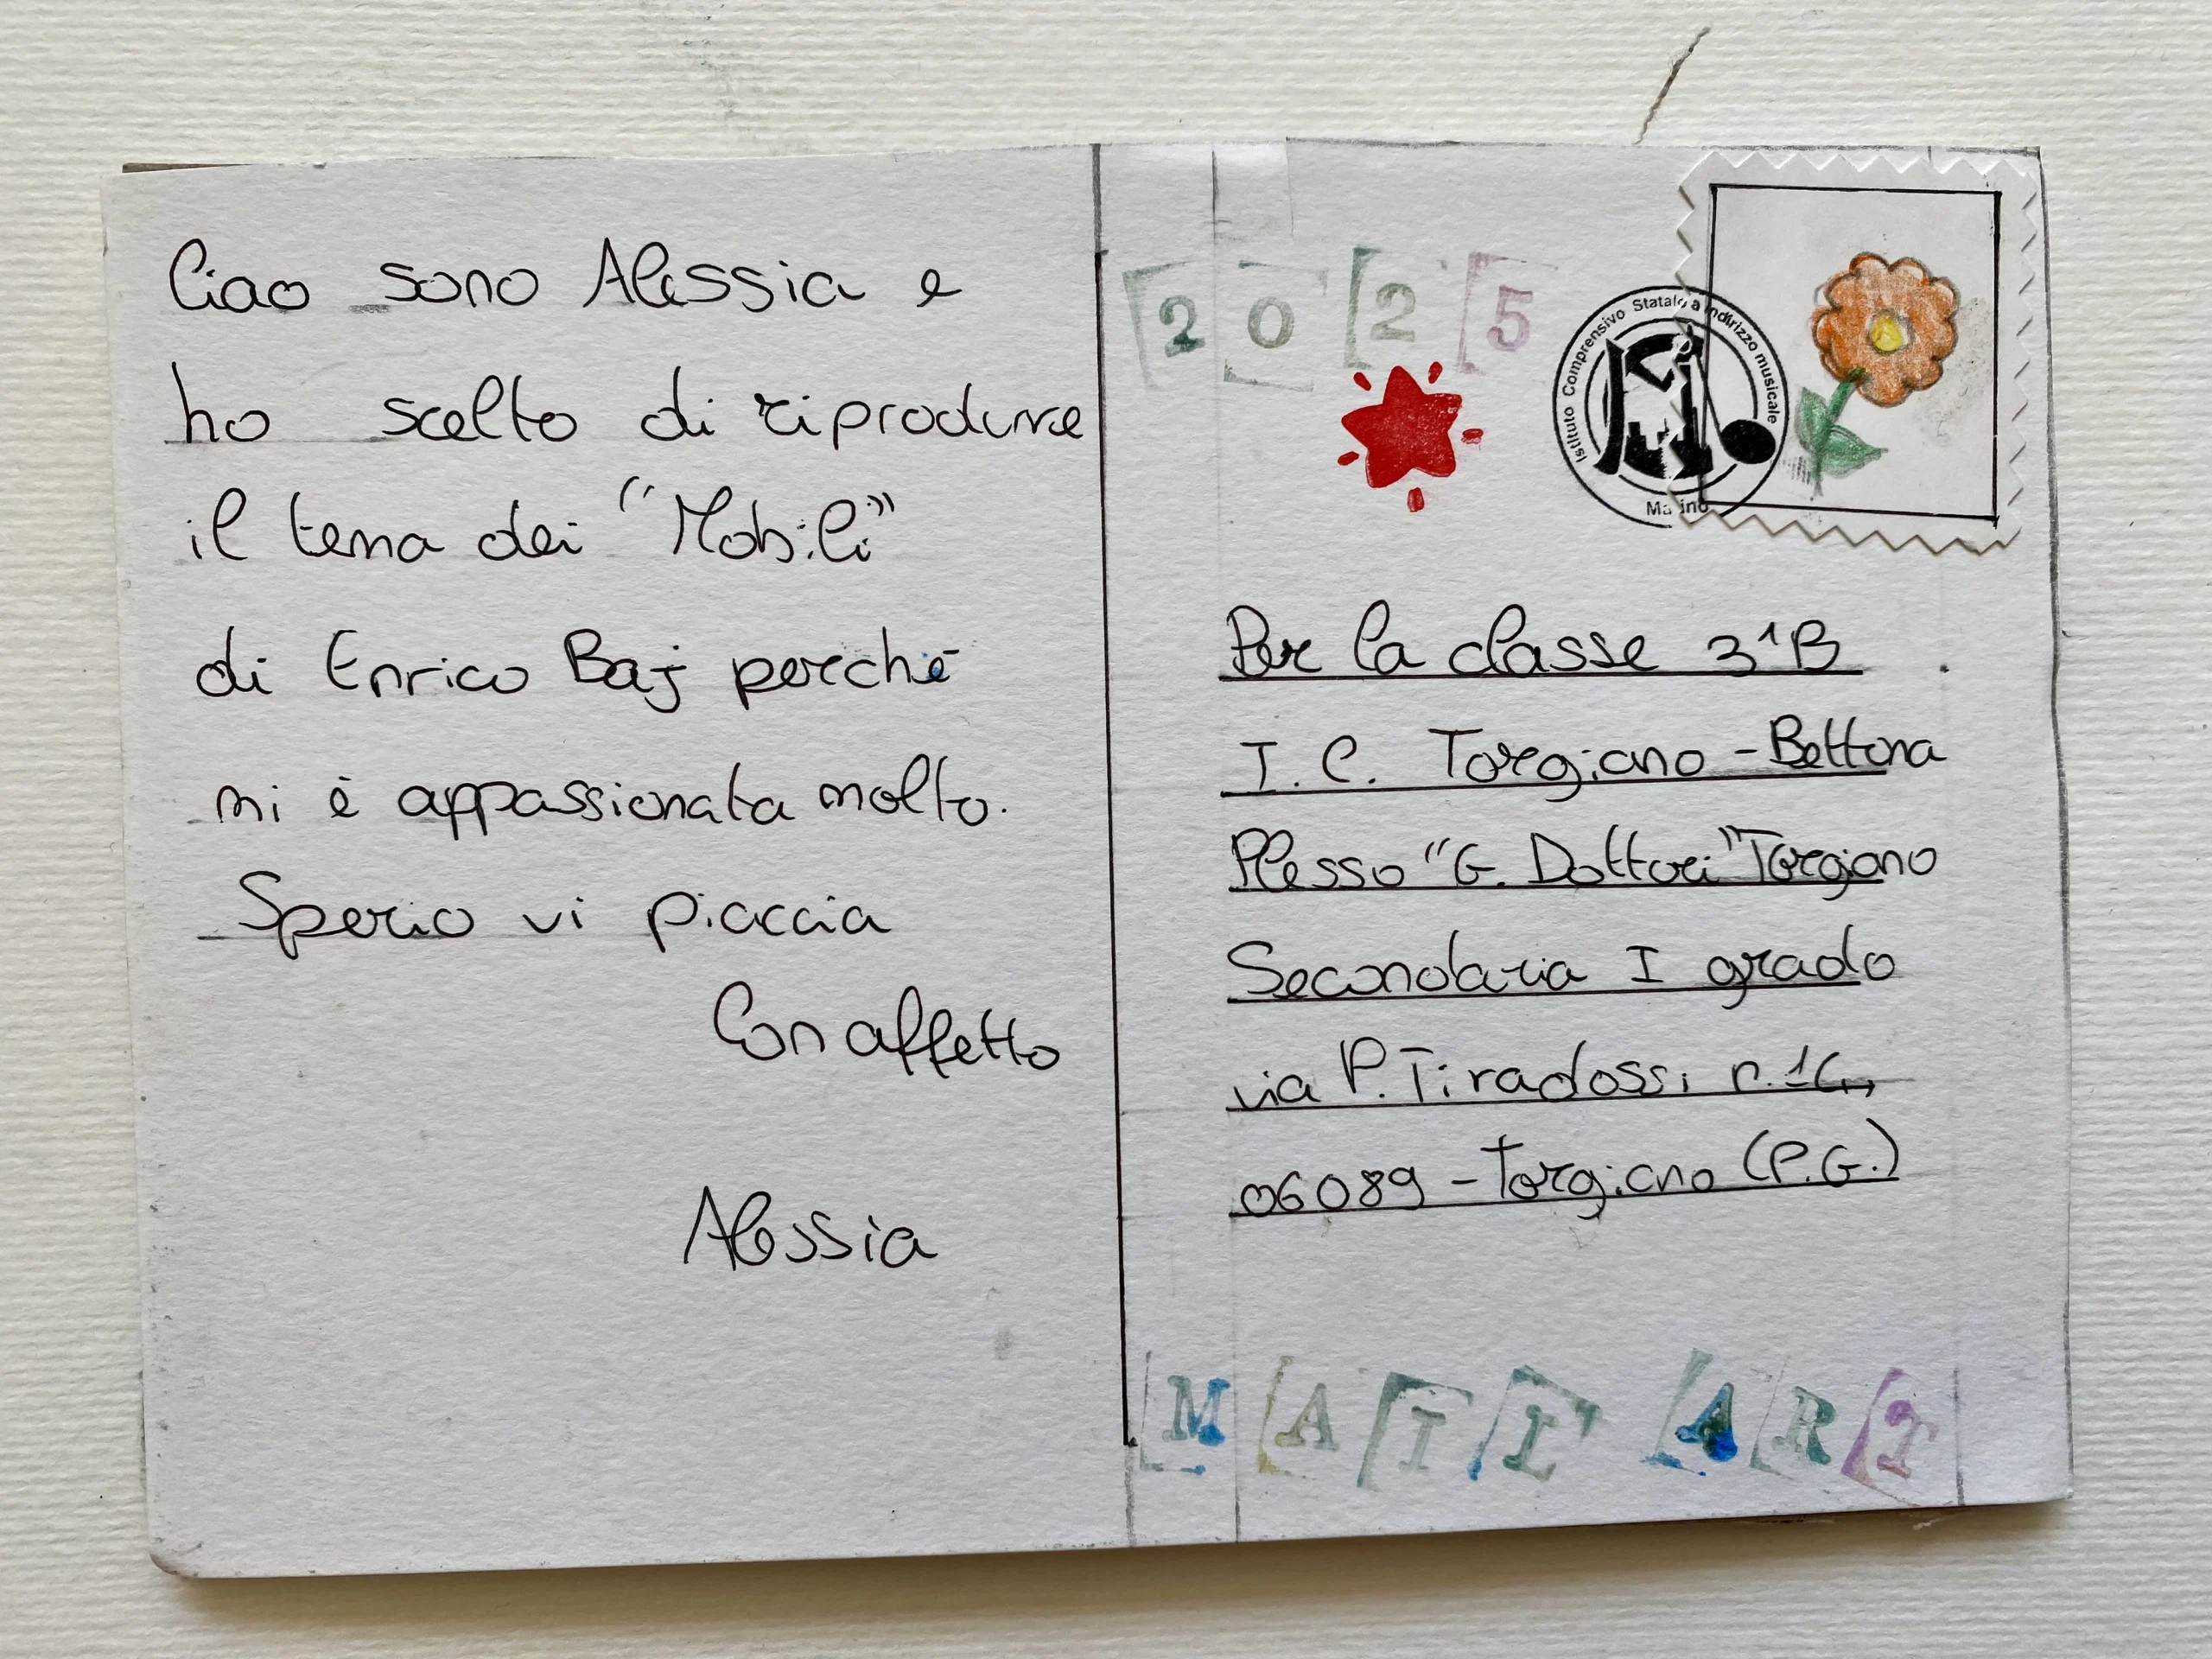 Ciao sono Alessia e
ho scelto di riprodurre
il tema dei "Mobili"
di Enrico Baj perché
mi è appassionata molto.
Sperio vi piaccia
Con affetto
Alessia
2025
Istituto Comprensivo Statale a indirizzo musicale
Marino
Per la classe 3^B
I.C. Torgiano - Bettona
Plesso "G. Dottori" Torgiano
Secondaria I grado
via P. Tiradossi n.
06089 - Torgiano (P.G.)
MAIL ART